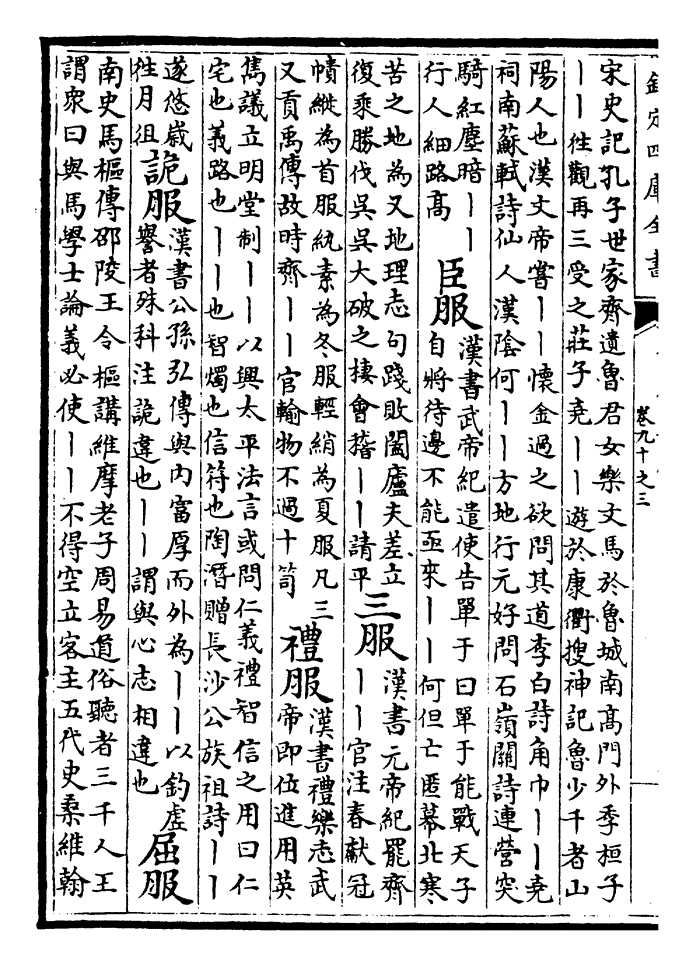 欽定四庫全書
卷九十之三
宋史記孔子世家齊遺魯君女樂文馬於魯城南髙門外季桓子
丨丨徃觀再三受之莊子堯丨丨遊於康衢搜神記魯少千者山
陽人也漢文帝嘗丨丨懷金過之欲問其道李白詩角巾丨丨堯
祠南蘇軾詩仙人漢陰何丨丨方地行元好問石嶺關詩連營突
騎紅塵暗丨丨
行人細路髙
臣服
漢書武帝紀遣使告單于曰單于能戰天子
自將待邊不能亟來丨丨何但亡匿幕北寒
苦之地為又地理志句踐敗闔廬夫差立
復乘勝伐吳吳大破之棲會稽丨丨請平
三服
漢書元帝紀罷齊
丨丨官注春獻冠
幘縰為首服紈素為冬服輕綃為夏服凡三
又貢禹傳故時齊丨丨官輸物不過十笥
禮服
漢書禮樂志武
帝即位進用英
雋議立明堂制丨丨以興太平法言或問仁義禮智信之用曰仁
宅也義路也丨丨也智燭也信符也陶潛贈長沙公族祖詩丨丨
遂悠嵗
徃月徂
詭服
漢書公孫弘傳與内富厚而外為丨丨以釣虛
譽者殊科注詭違也丨丨謂與心志相違也
屈服
南史馬樞傳邵陵王令樞講維摩老子周易道俗聽者三千人王
謂衆曰與馬學士論義必使丨丨不得空立客主五代史桑維翰